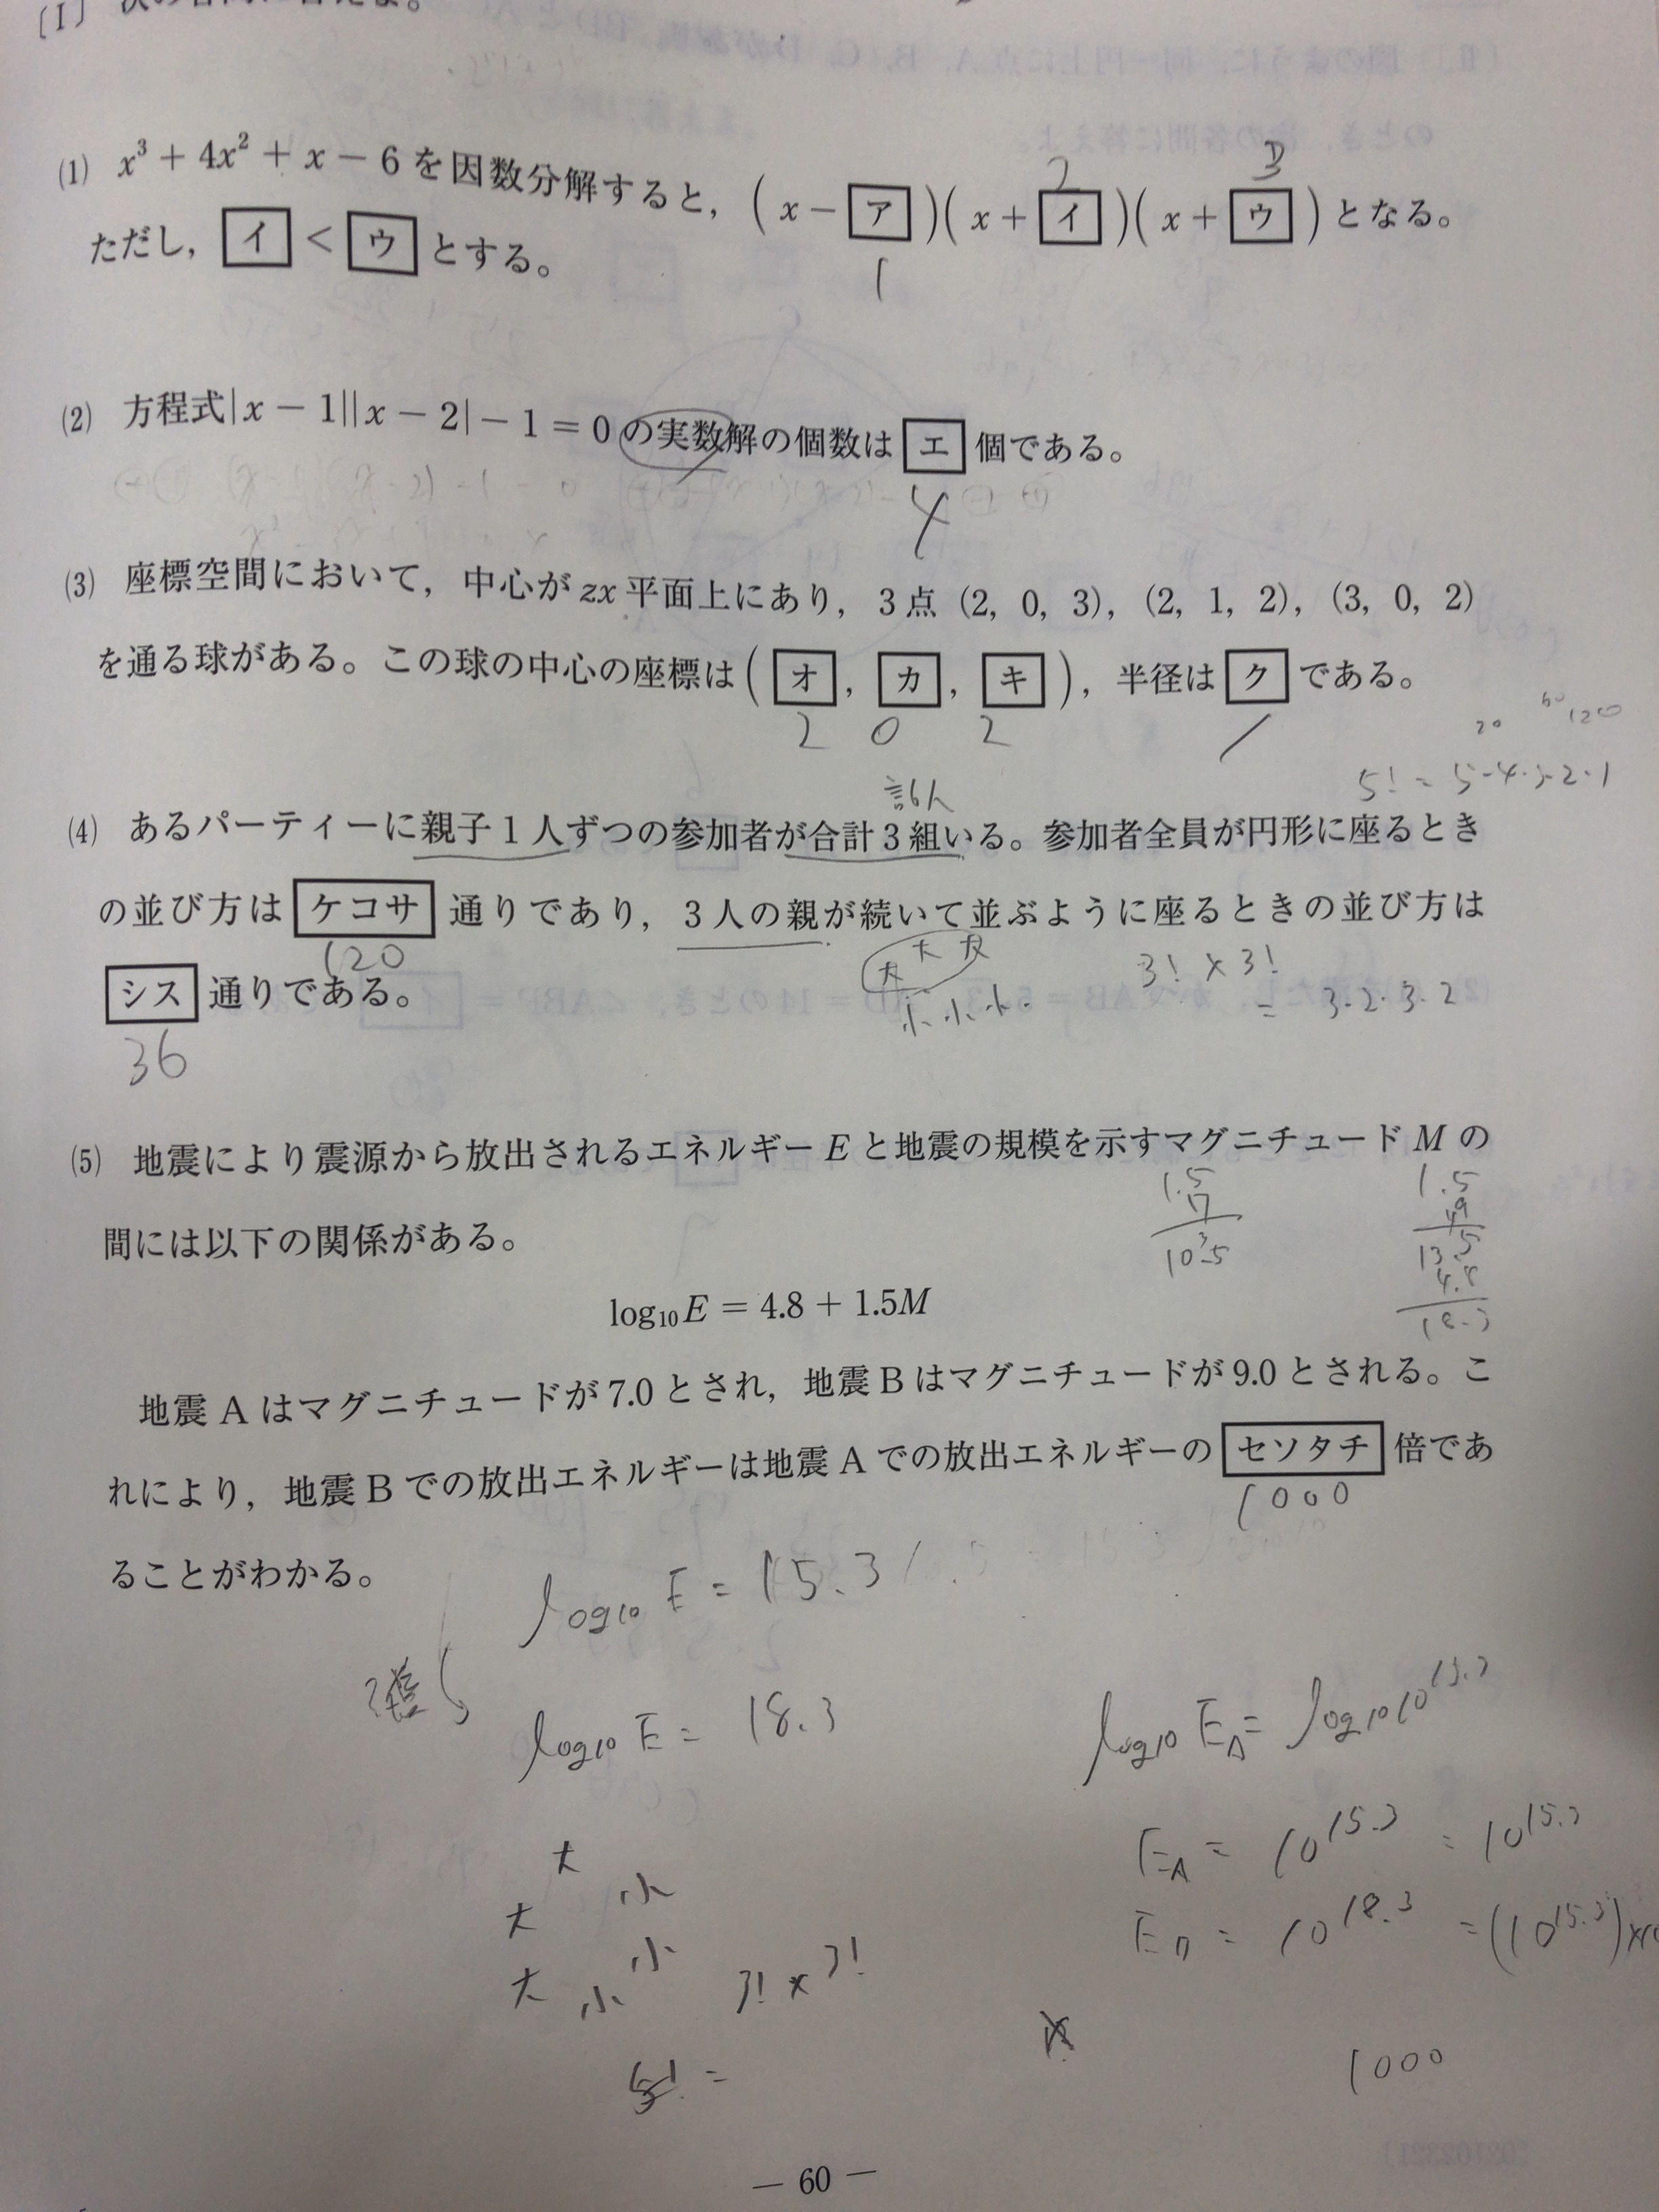 〔I〕 次の各問に答えよ。
2 3
(1) x³ + 4x² + x − 6 を因数分解すると, (x − ア)(x + イ)(x + ウ) となる。
ただし, イ < ウ とする。
1
(2) 方程式|x − 1||x − 2| − 1 = 0 の実数解の個数は エ 個である。
4
(3) 座標空間において, 中心が zx 平面上にあり, 3点 (2, 0, 3), (2, 1, 2), (3, 0, 2)
を通る球がある。この球の中心の座標は ( オ , カ , キ ), 半径は ク である。
2 0 2 1
20 60 120
5! = 5·4·3·2·1
計6人
(4) あるパーティーに親子1人ずつの参加者が合計3組いる。参加者全員が円形に座るとき
の並び方は ケコサ 通りであり, 3人の親が続いて並ぶように座るときの並び方は
120
大 大 大
小 小 小
3! × 3!
= 3·2·3·2
シス 通りである。
36
(5) 地震により震源から放出されるエネルギー E と地震の規模を示すマグニチュード M の
1.5
7
10.5
1.5
9
13.5
4.8
18.3
間には以下の関係がある。
log₁₀ E = 4.8 + 1.5M
地震 A はマグニチュードが 7.0 とされ, 地震 B はマグニチュードが 9.0 とされる。こ
れにより, 地震 B での放出エネルギーは地震 A での放出エネルギーの セソタチ 倍であ
1000
ることがわかる。
log₁₀ E = 15.3
log₁₀ E = 18.3
log₁₀ E_A = log₁₀ 10^15.3
E_A = 10^15.3 = 10^15.3
E_B = 10^18.3 = (10^15.3)×
大
大 小
大 小 小
3! × 3!
5! =
1000
— 60 —